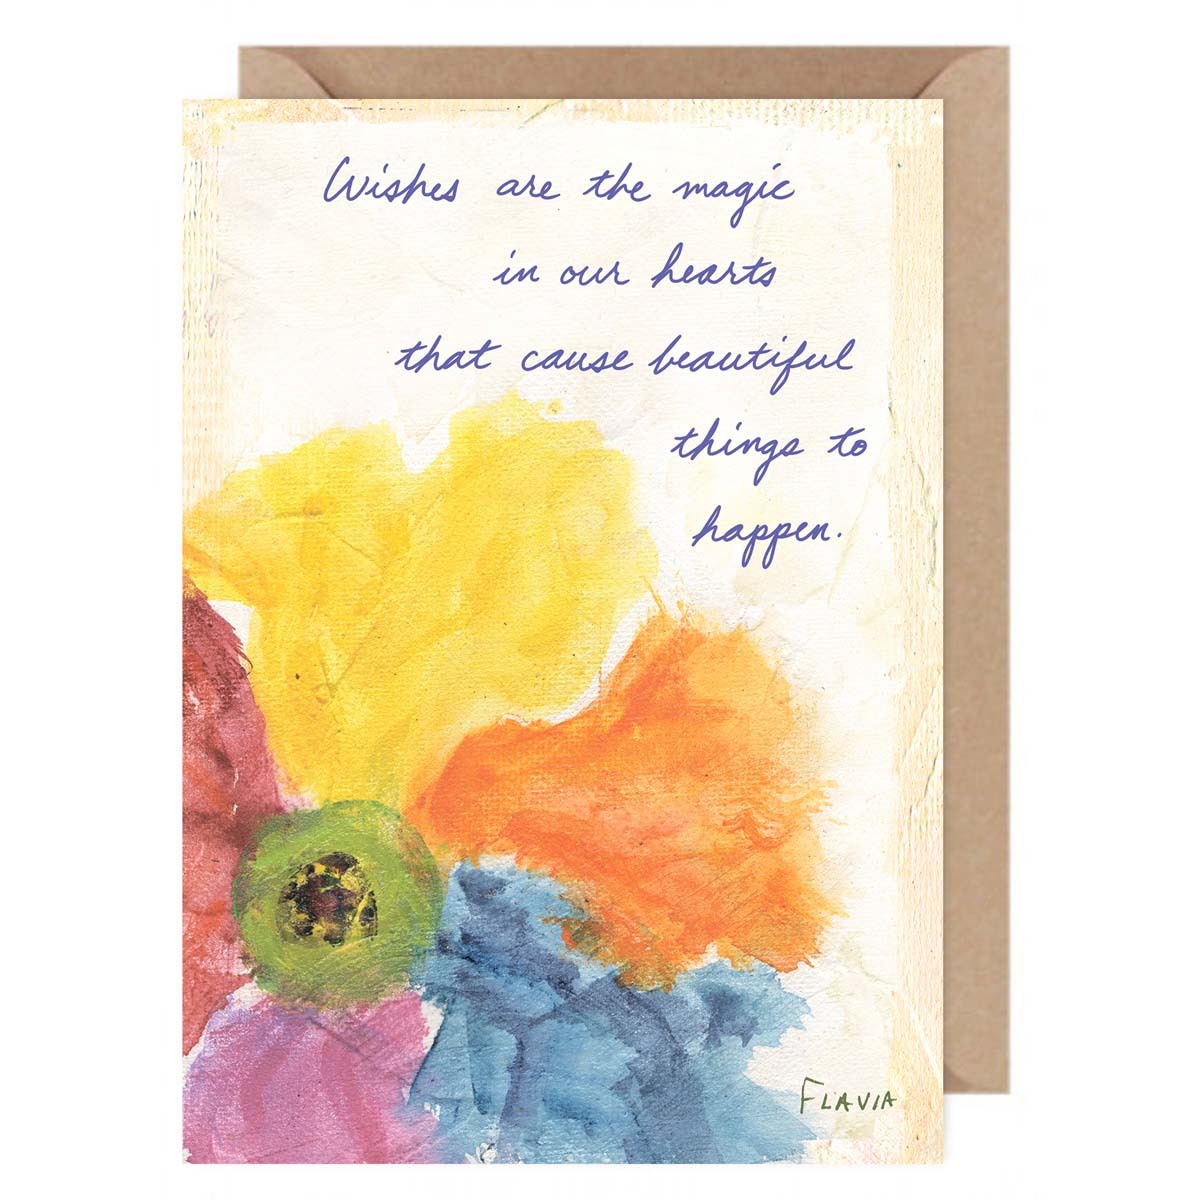 Wishes are the magic
in our hearts
that cause beautiful
things to
happen.
FLAVIA